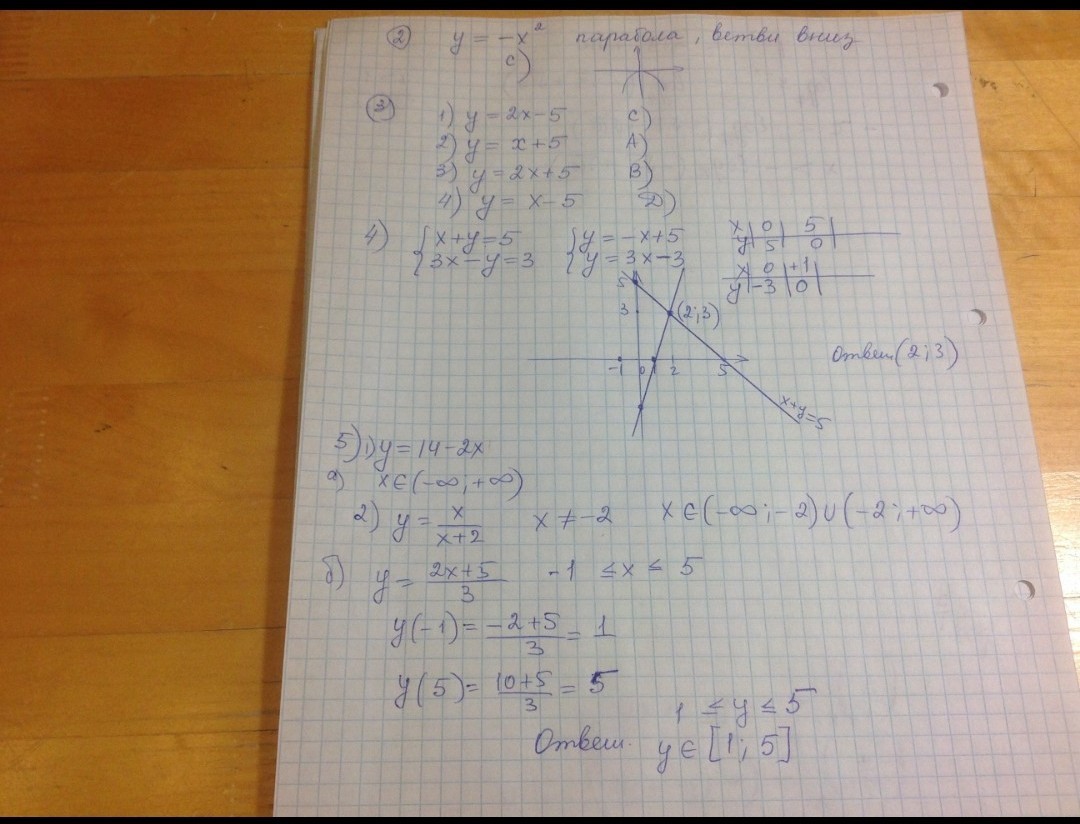 ② y = -x² парабола, ветви вниз
c)
③ 1) y = 2x-5 C)
2) y = x+5 A)
3) y = 2x+5 B)
4) y = x-5 D)
4) { x+y=5 { y=-x+5 x | 0 | 5 |
{ 3x-y=3 { y=3x-3 y | 5 | 0 |
x | 0 | +1 |
y | -3 | 0 |
5
3 (2;3)
-1 0 1 2 5
Ответ (2;3)
x+y=5
5) 1) y=14-2x
а) x∈(-∞;+∞)
2) y = x/(x+2) x ≠ -2 x∈(-∞;-2)∪(-2;+∞)
б) y = (2x+5)/3 -1 ≤ x ≤ 5
y(-1) = (-2+5)/3 = 1
y(5) = (10+5)/3 = 5
1 ≤ y ≤ 5
Ответ. y ∈ [1; 5]